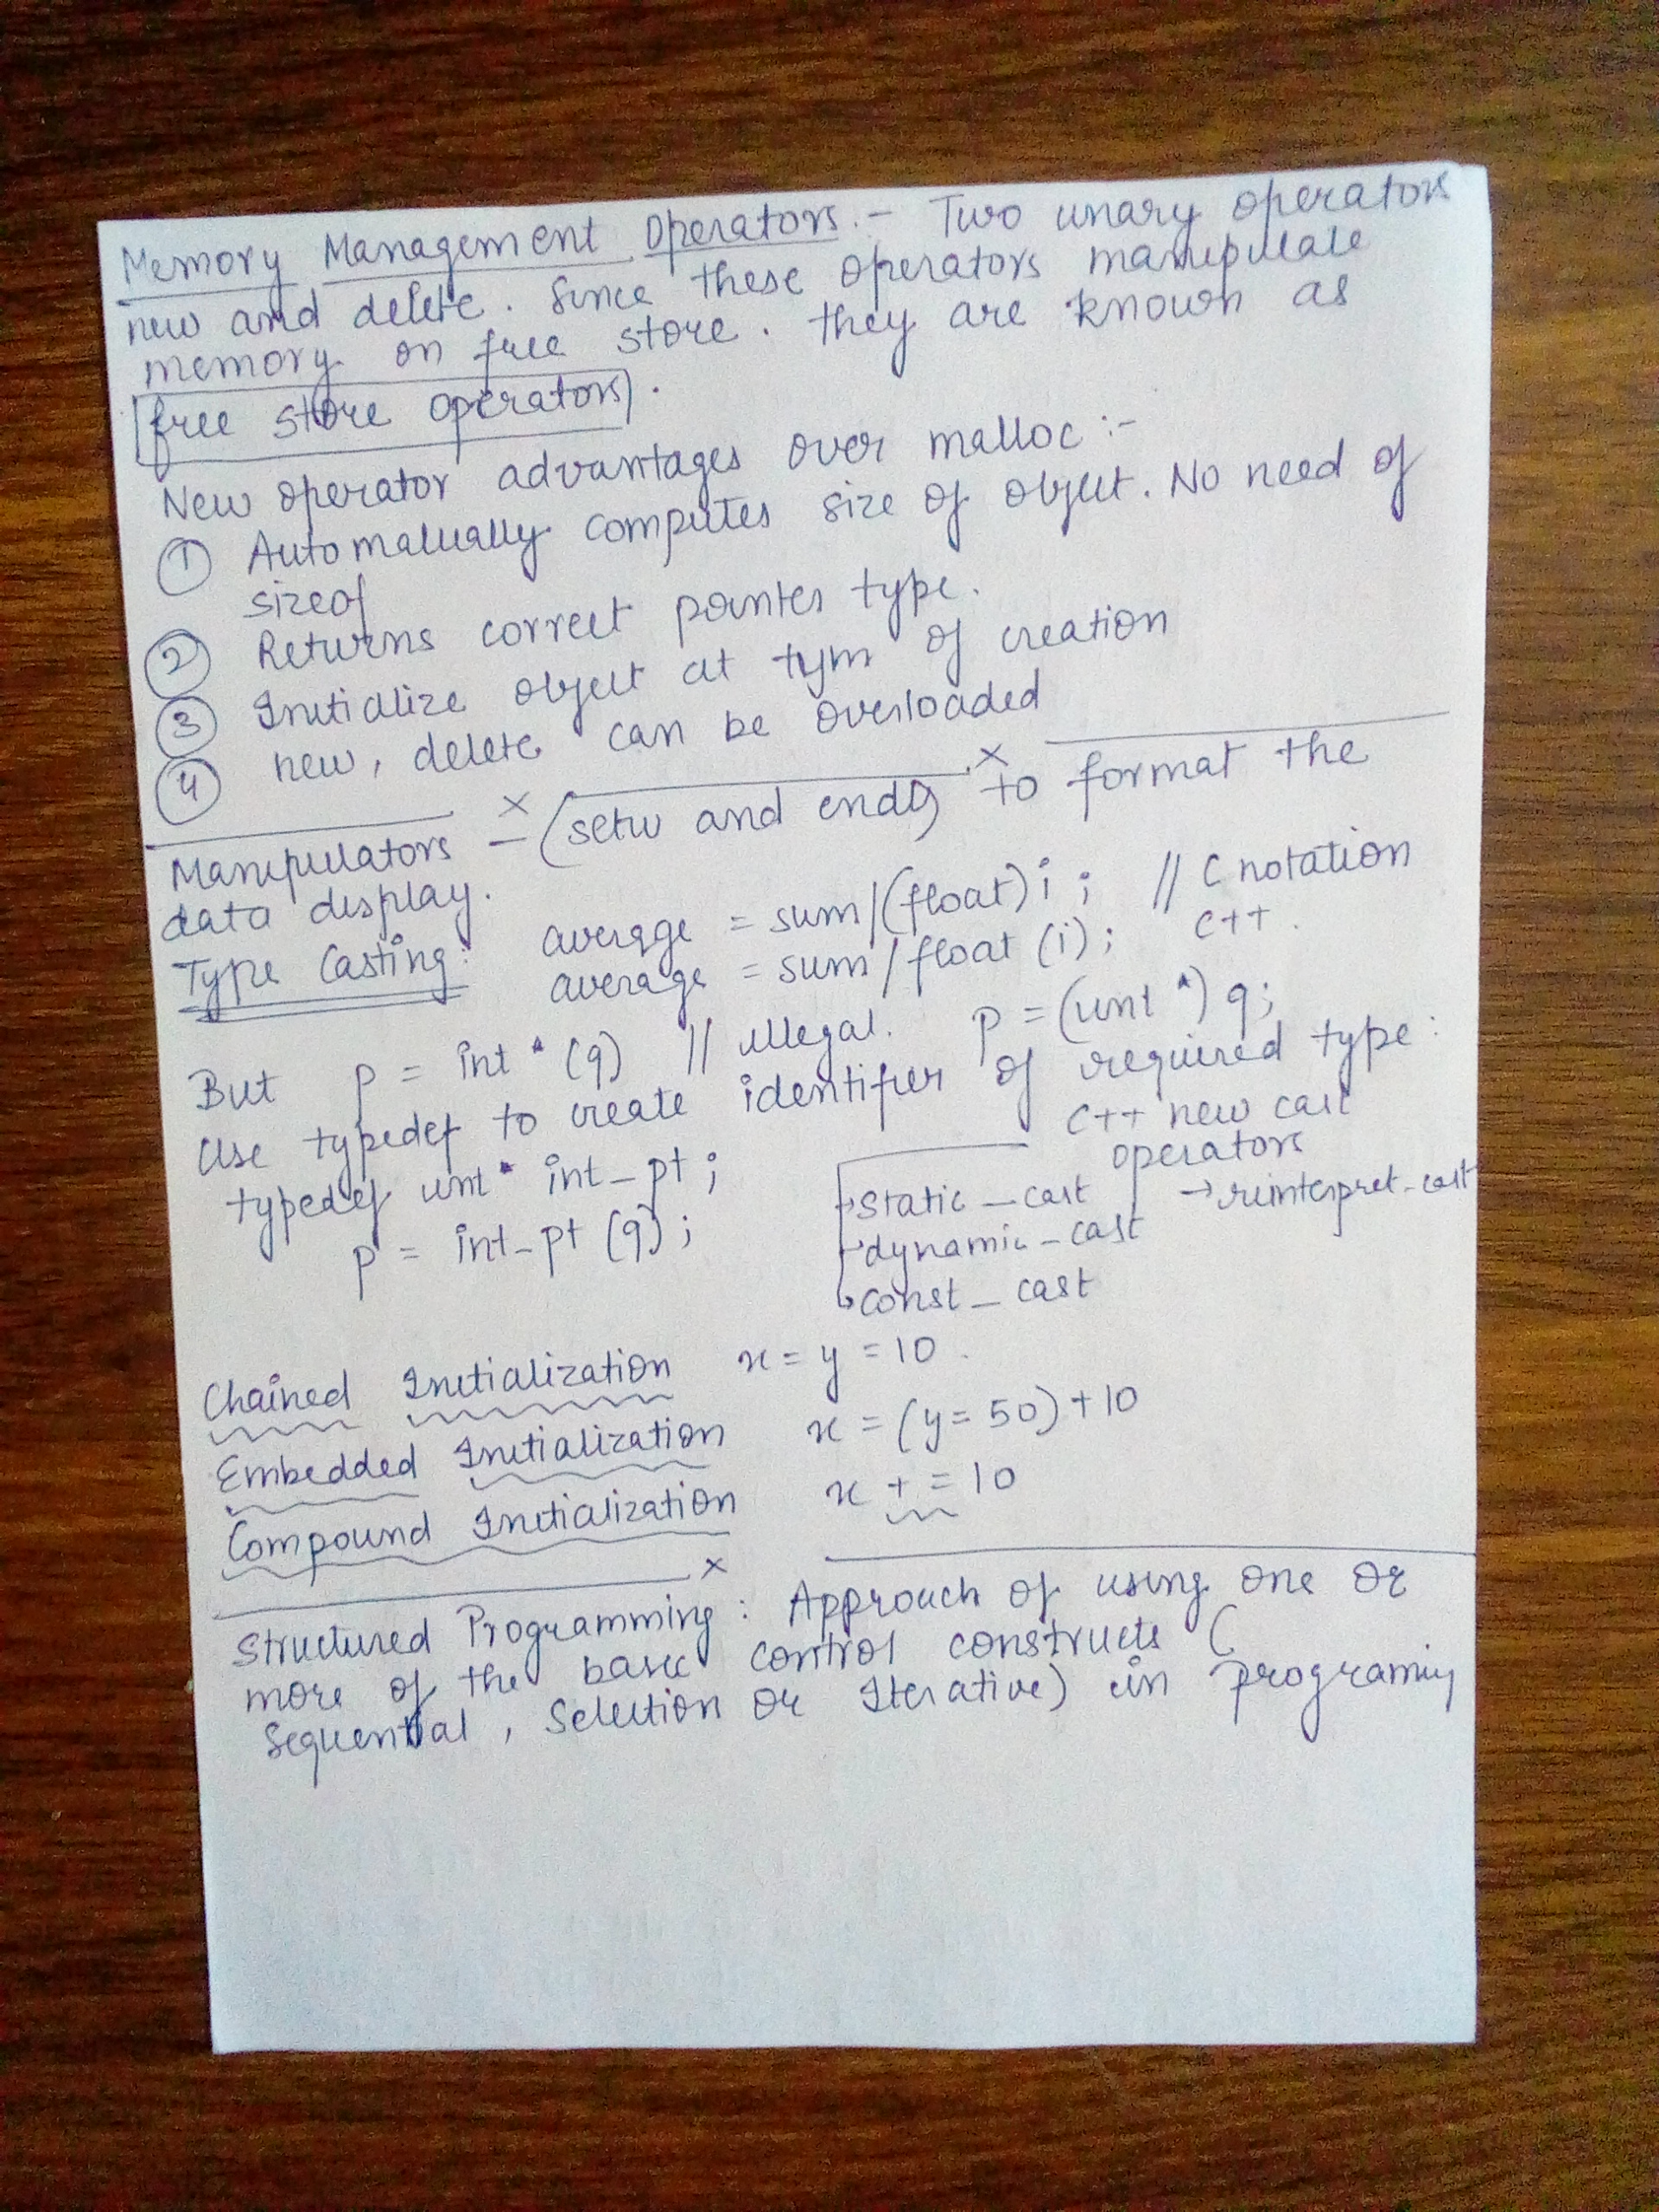 Memory Management Operators :- Two unary operators
new and delete. Since these operators manipulate
memory on free store. they are known as
free store operators.
New operator advantages over malloc :-
① Automatically computes size of object. No need of
sizeof
② Returns correct pointer type.
③ Initialize object at tym of creation
④ new, delete can be overloaded
Manipulators - (setw and endl) to format the
data display.
Type Casting: average = sum/(float)i; // C notation
average = sum/float (i); C++.
But p = int * (q) // illegal. p = (int *) q;
Use typedef to create identifier of required type:
typedef int * int_pt;
p = int_pt (q);
C++ new cast
operators
static_cast → reinterpret_cast
dynamic_cast
const_cast
Chained Initialization x = y = 10.
Embedded Initialization x = (y = 50) + 10
Compound Initialization x += 10
Structured Programming: Approach of using one or
more of the basic control constructs (
Sequential, Selection or Iterative) in programing